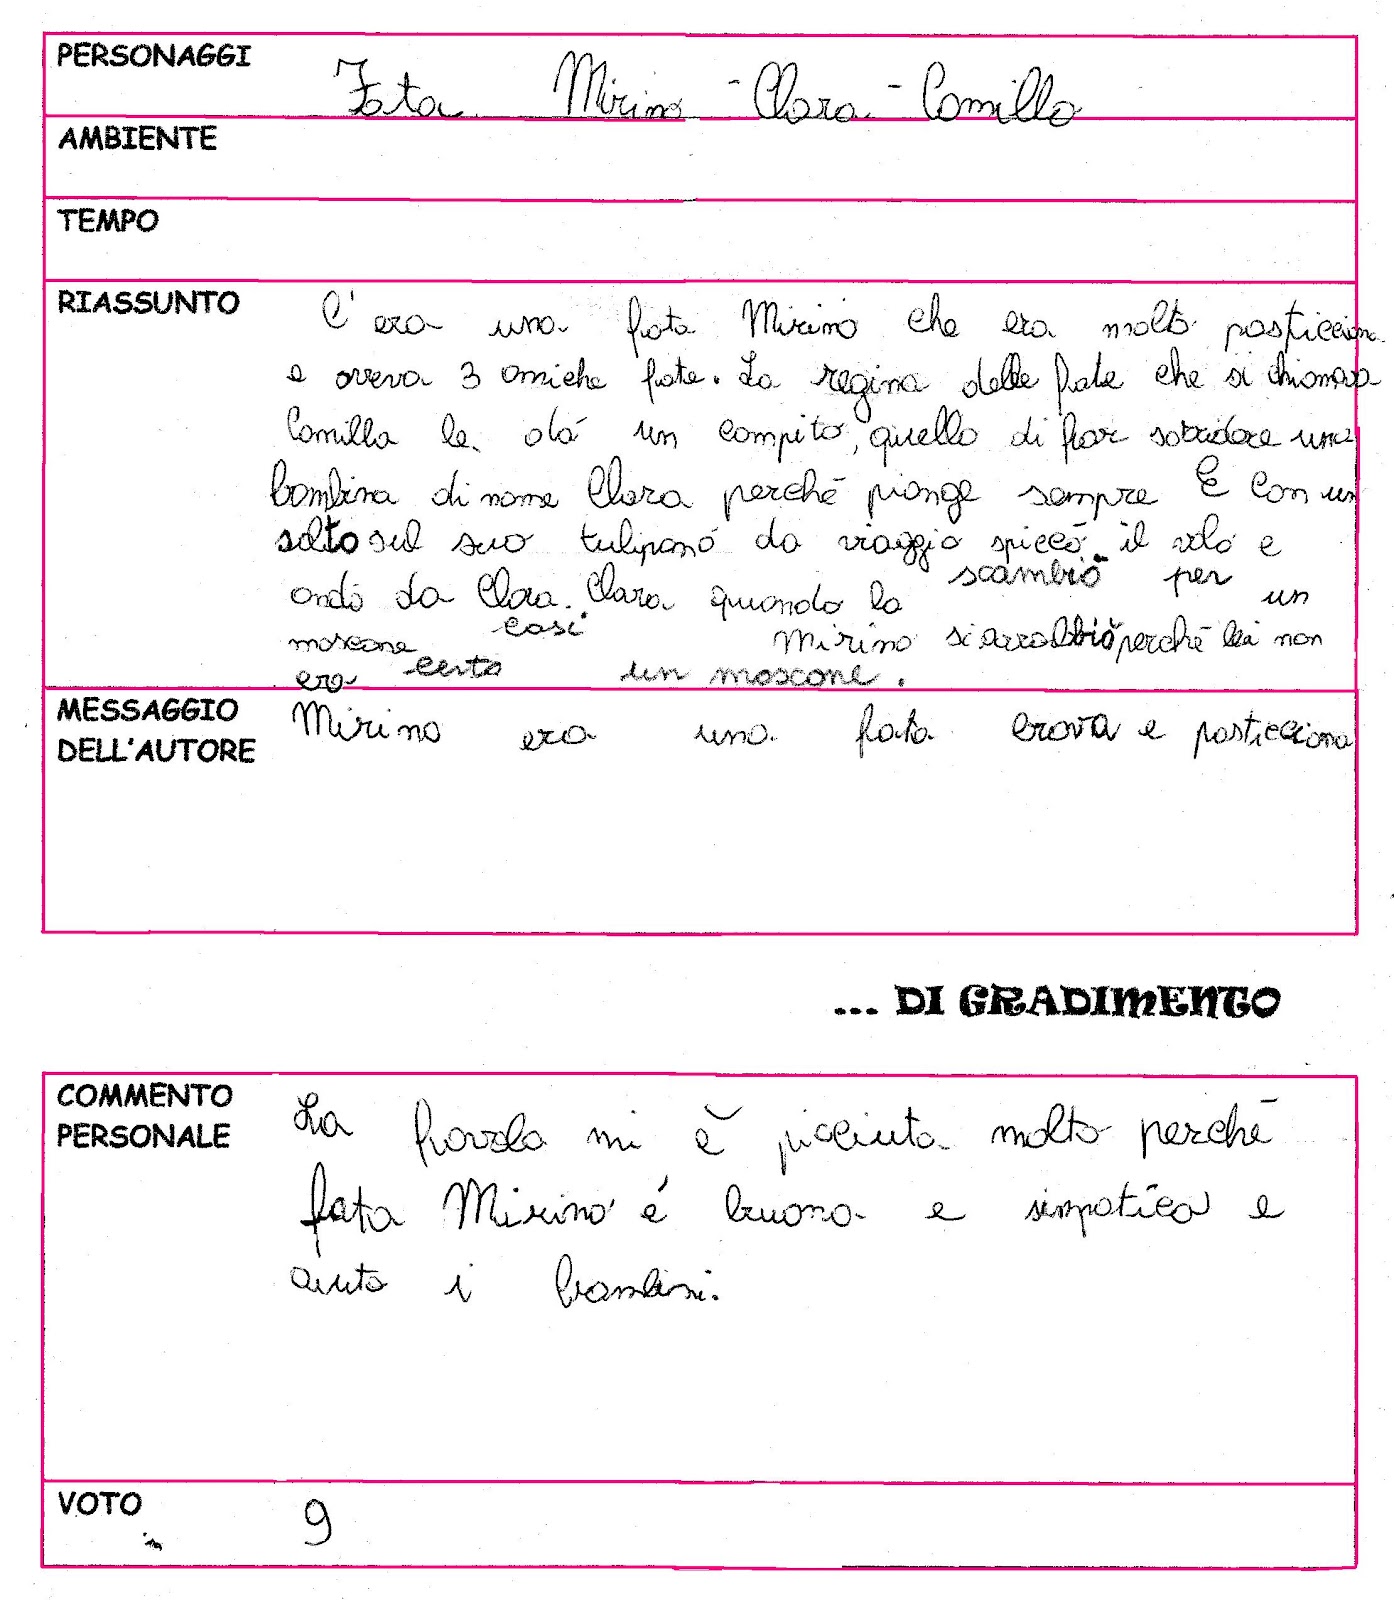 PERSONAGGI
Fata Mirinò - Clara - Camilla
AMBIENTE
TEMPO
RIASSUNTO
C'era una fata Mirinò che era molto pasticciona
e aveva 3 amiche fate. La regina delle fate che si chiamava
Camilla le dà un compito, quello di far sorridere una
bambina di nome Clara perché piange sempre E con un
salto sul suo tulipano da viaggio spiccò il volo e
andò da Clara. Clara quando la scambiò per un
moscone così Mirino si arrabbiò perché lei non
era certo un moscone.
MESSAGGIO
DELL'AUTORE
Mirino era una fata brava e pasticciona
... DI GRADIMENTO
COMMENTO
PERSONALE
La favola mi è piaciuta molto perché
fata Mirinò è buona e simpatica e
aiuta i bambini.
VOTO
9